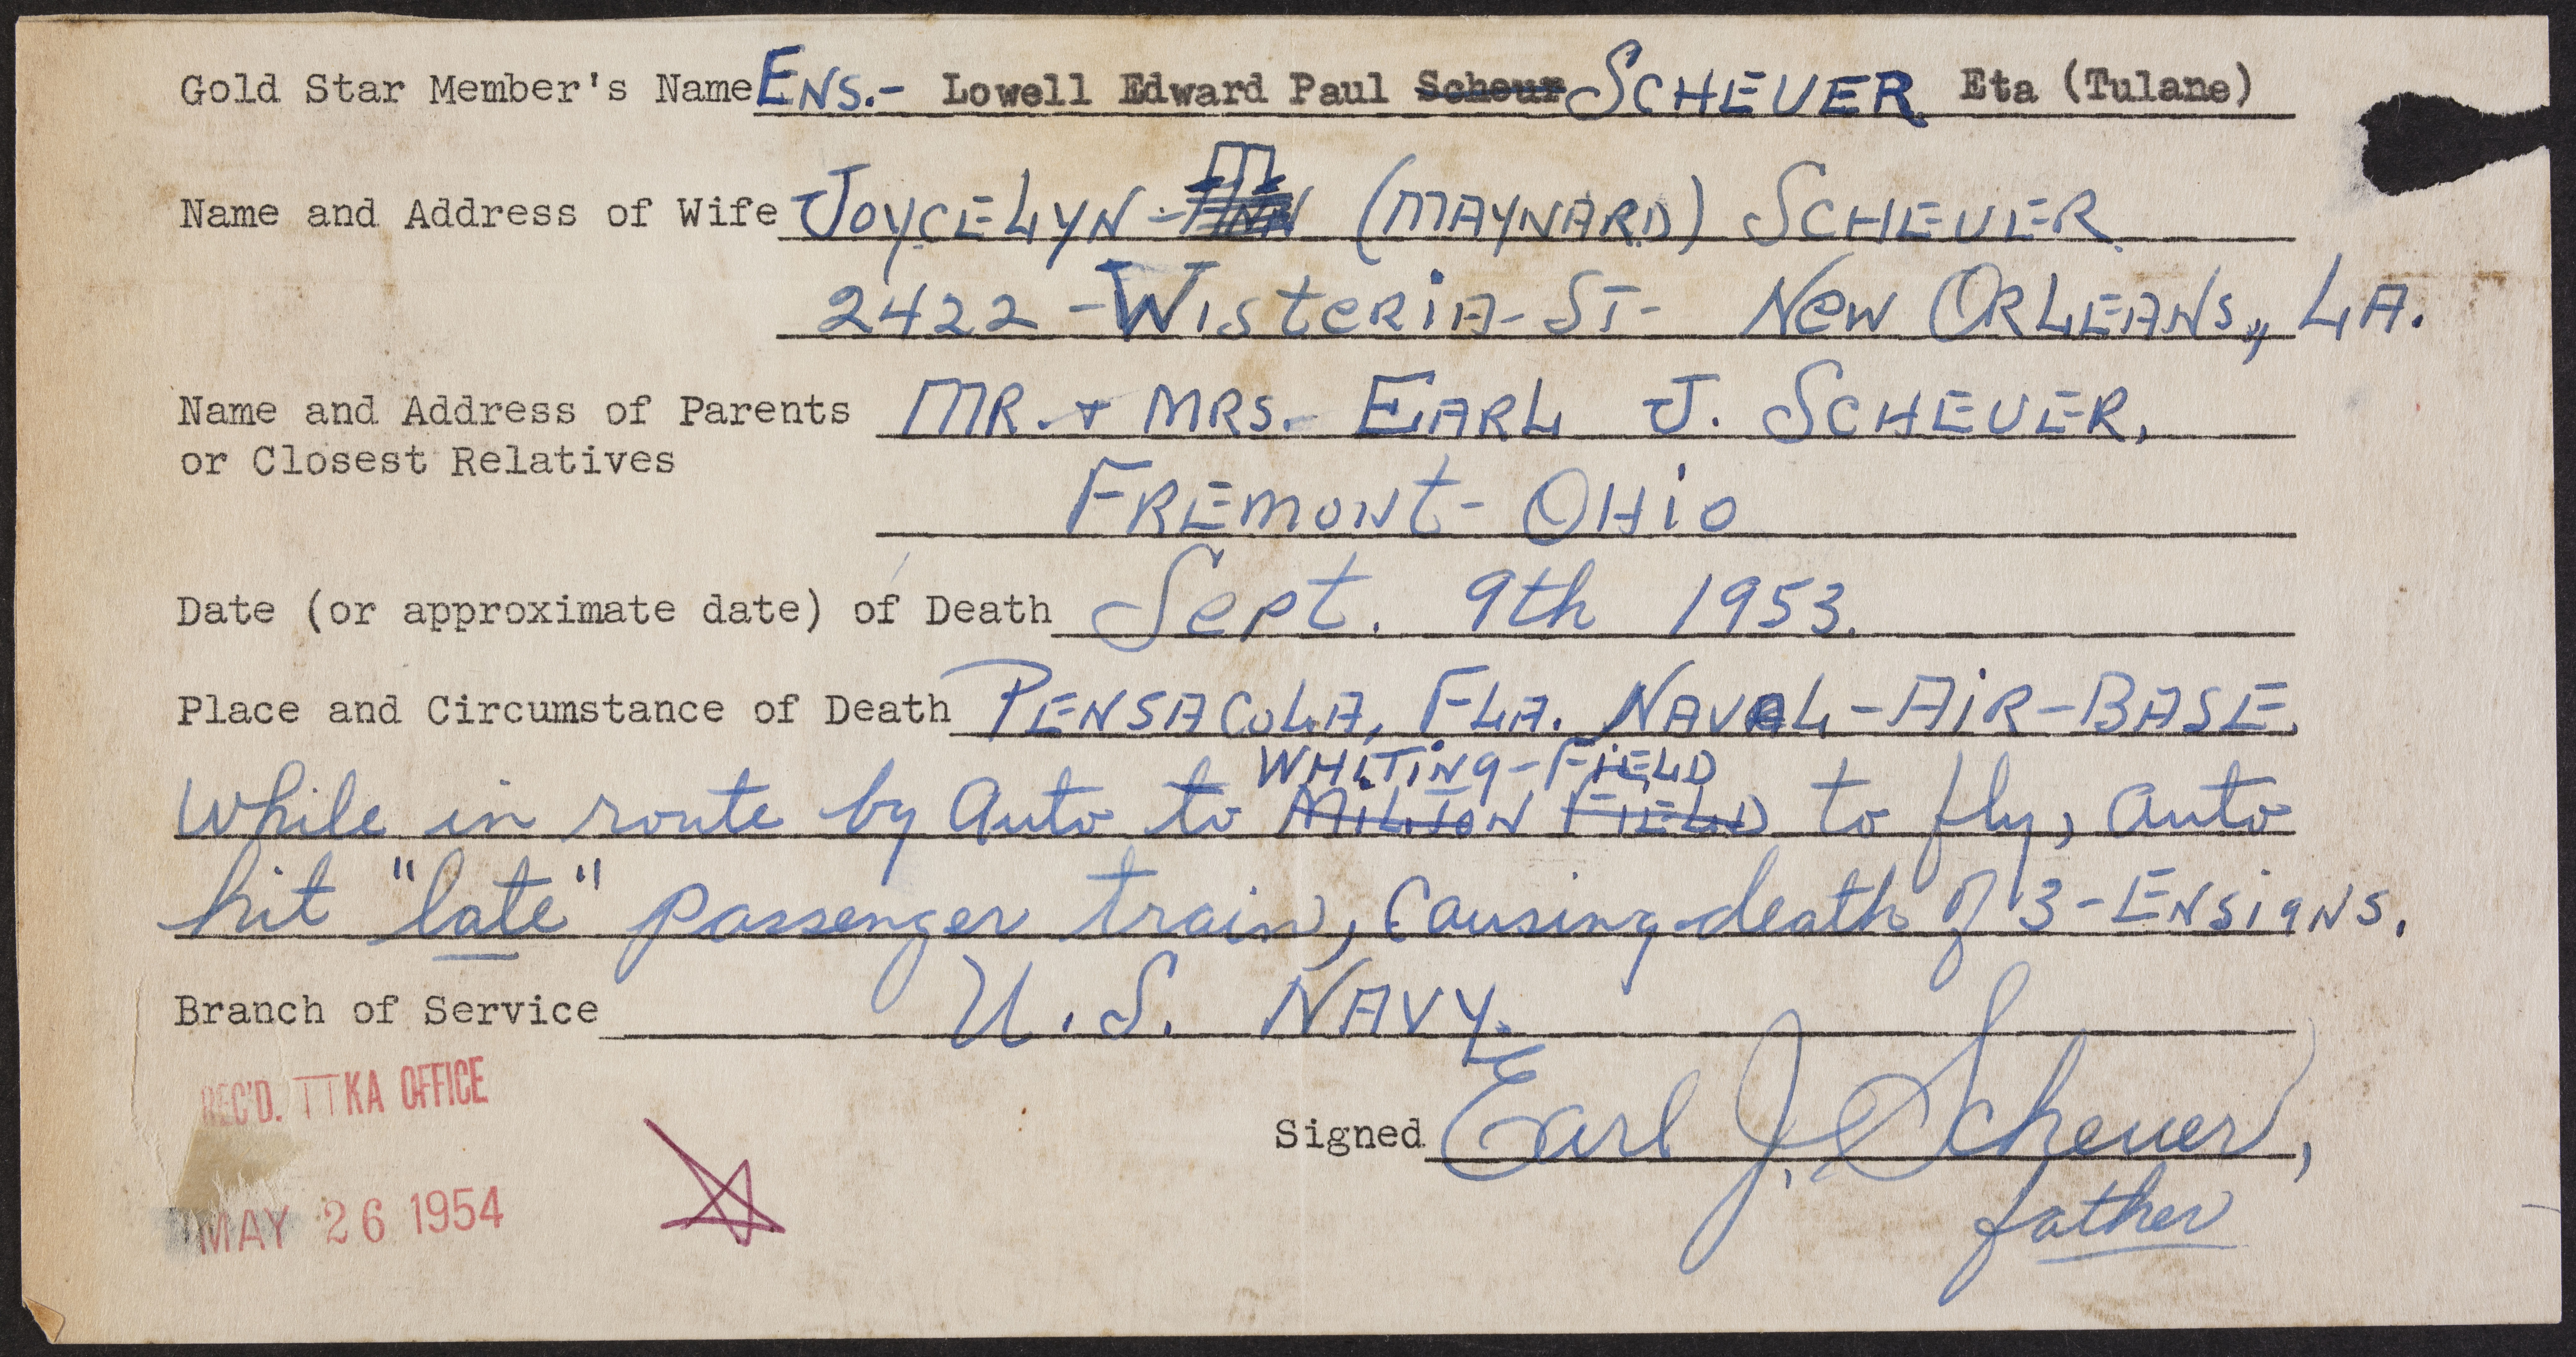 Gold Star Member's Name ENS.- Lowell Edward Paul Scheur SCHEUER Eta (Tulane)
Name and Address of Wife JOYCELYN- (MAYNARD) SCHEUER
2422 -WISteRiA- ST- NeW ORLEANS,, LA.
Name and Address of Parents MR. + MRS.- EARL J. SCHEUER,
or Closest Relatives
FREMONt- OHiO
Date (or approximate date) of Death Sept. 9th 1953.
Place and Circumstance of Death PENSACOLA, FLA. NAVAL-AiR-BASE.
WHiTiNg-FiELD
While in route by auto to MiLitoN FiELD to fly, auto
hit "late" passenger train, Causing death of 3-ENSigNS.
Branch of Service U.S. NAVY.
REC'D. TTKA OFFICE
Signed Earl J. Scheuer,
MAY 26 1954
father